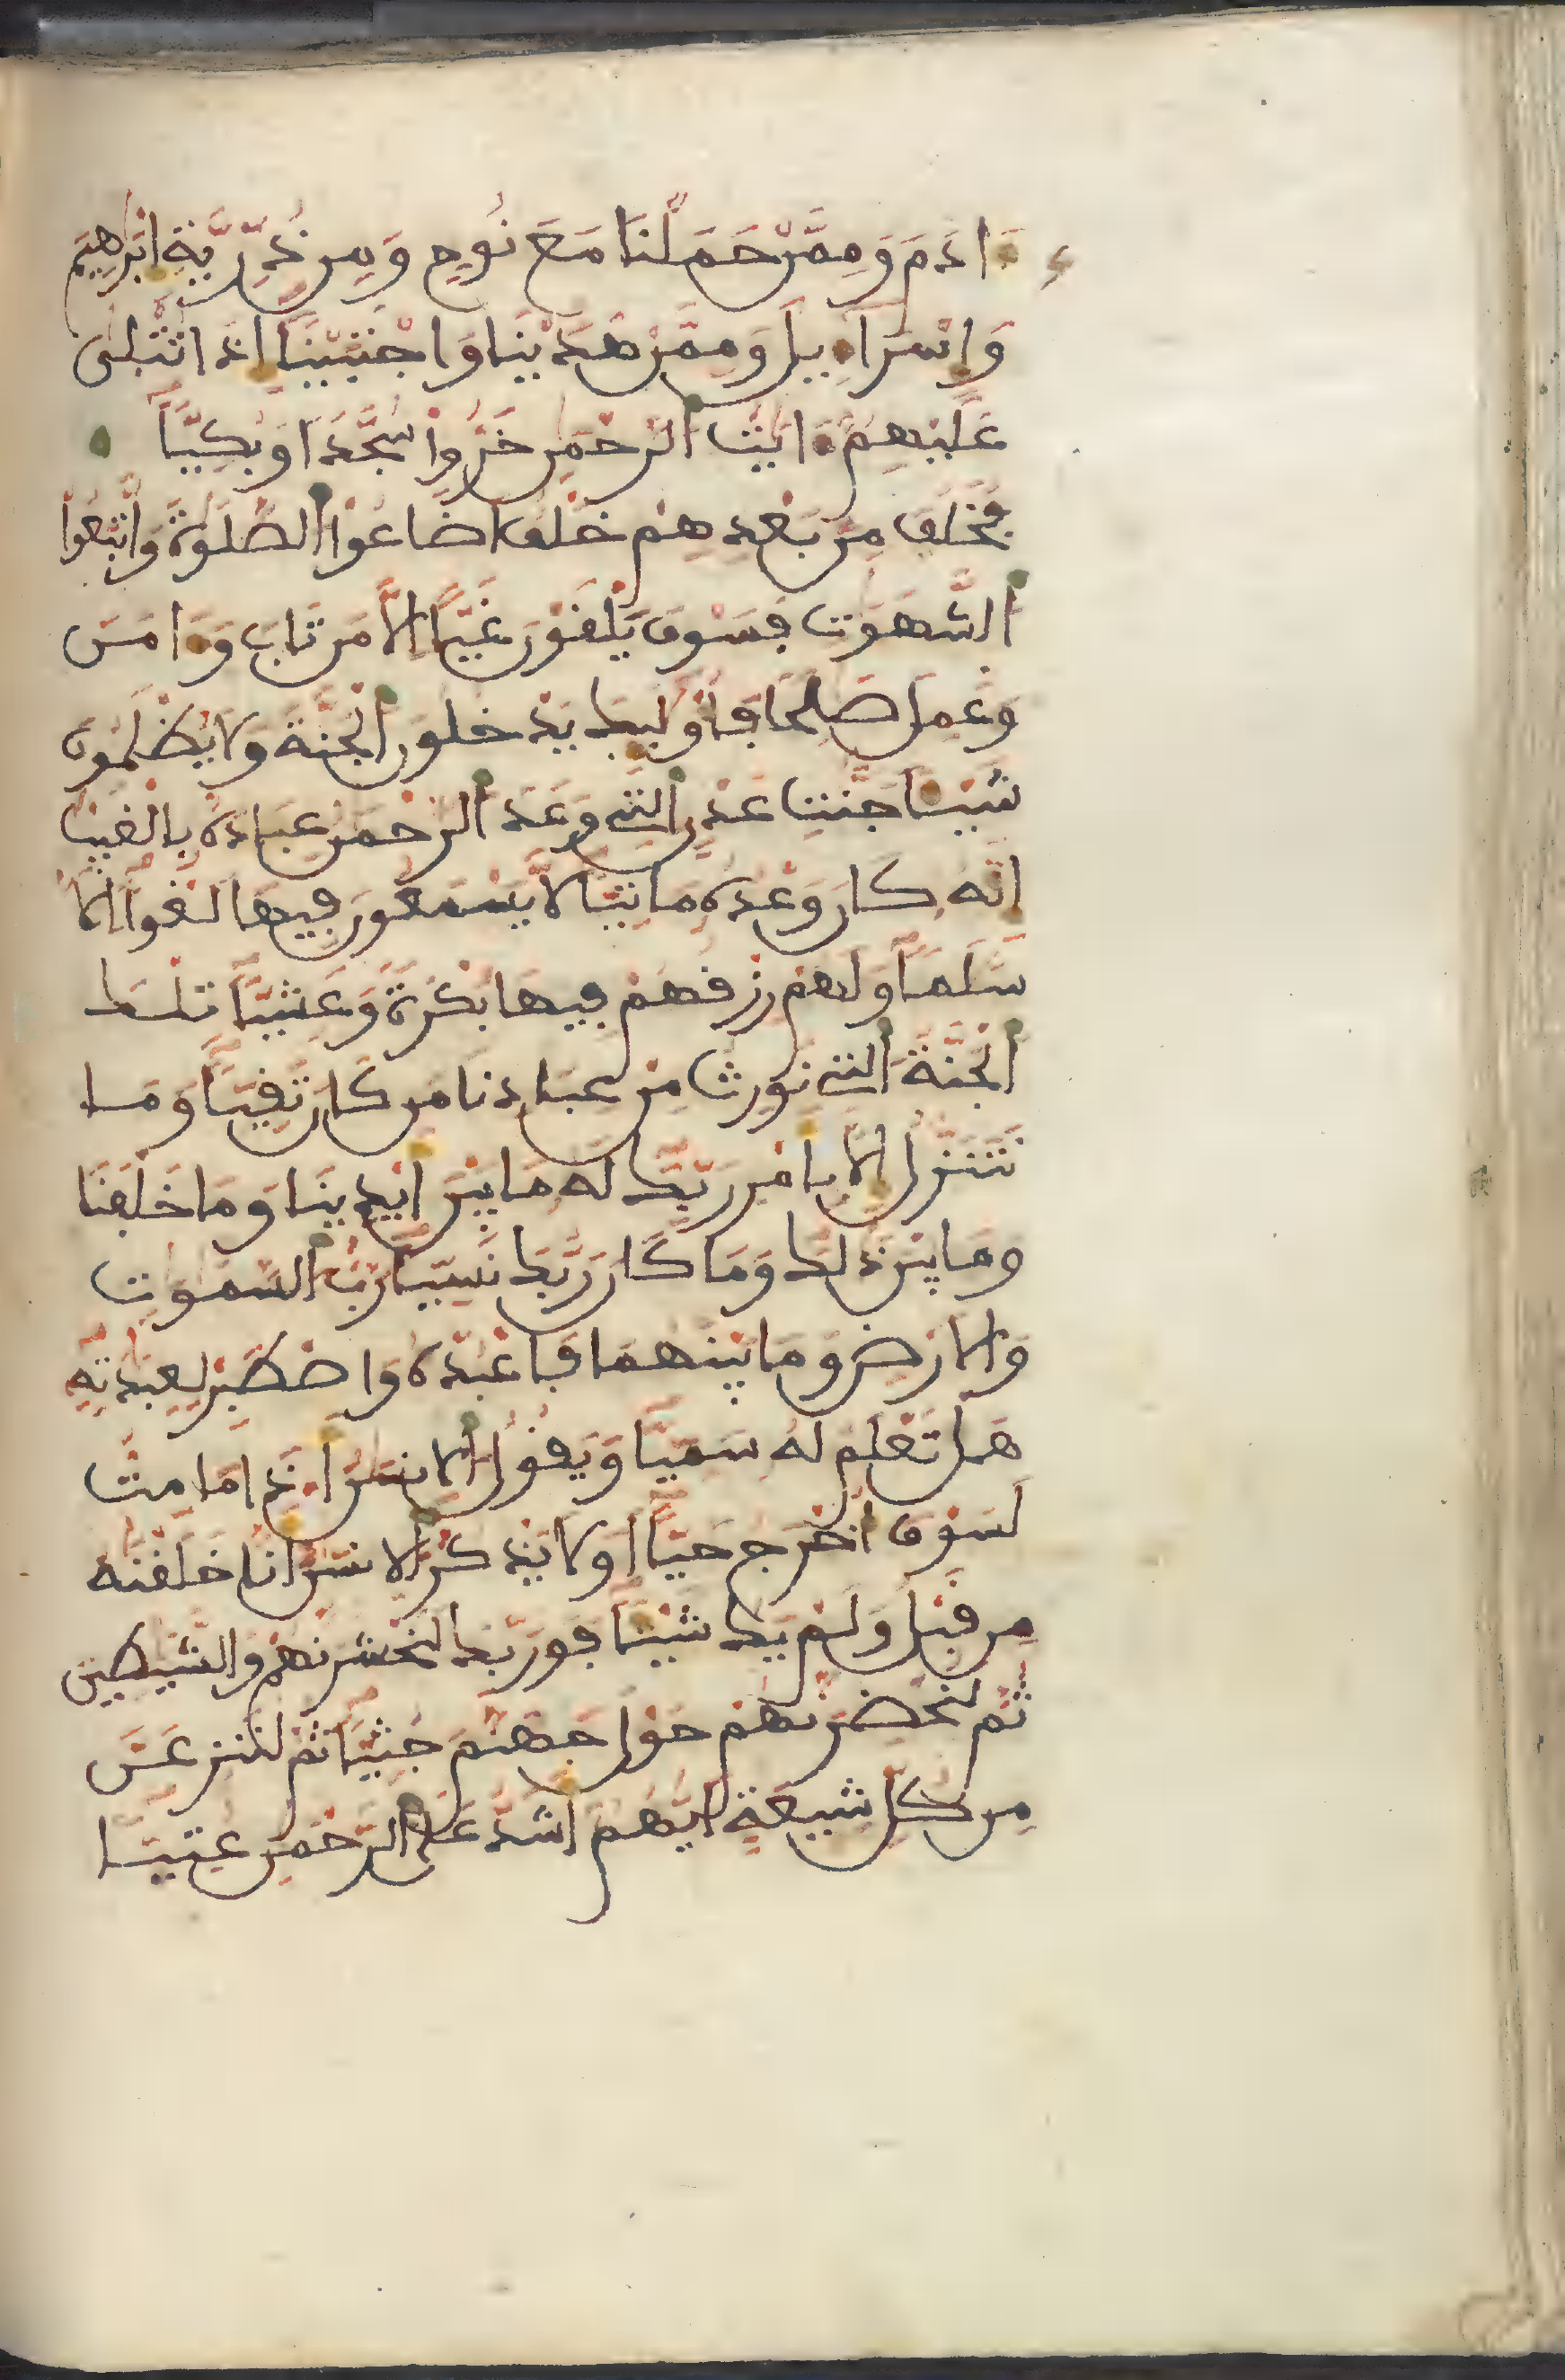 ءَادَمَ وَمِمَّنْ حَمَلْنَا مَعَ نُوحٍ وَمِن ذُرِّيَّةِ إِبْرَٰهِيمَ
وَإِسْرَآءِيلَ وَمِمَّنْ هَدَيْنَا وَاجْتَبَيْنَا إِذَا تُتْلَىٰ
عَلَيْهِمُ ءَايَٰتُ الرَّحْمَٰنِ خَرُّوا سُجَّدًا وَبُكِيًّا
فَخَلَفَ مِنۢ بَعْدِهِمْ خَلْفٌ اَضَاعُوا الصَّلَوٰةَ وَاتَّبَعُوا
الشَّهَوَٰتِ فَسَوْفَ يَلْقَوْنَ غَيًّا إِلَّا مَن تَابَ وَءَامَنَ
وَعَمِلَ صَٰلِحًا فَأُوْلَٰٓئِكَ يَدْخُلُونَ الْجَنَّةَ وَلَا يُظْلَمُونَ
شَيْـًٔا جَنَّٰتِ عَدْنٍ الَّتِي وَعَدَ الرَّحْمَٰنُ عِبَادَهُ بِالْغَيْبِ
إِنَّهُ كَانَ وَعْدُهُ مَاتِيًّا لَّا يَسْمَعُونَ فِيهَا لَغْوًا إِلَّا
سَلَٰمًا وَلَهُمْ رِزْقُهُمْ فِيهَا بُكْرَةً وَعَشِيًّا تِلْكَ
الْجَنَّةُ الَّتِي نُورِثُ مِنْ عِبَادِنَا مَن كَانَ تَقِيًّا وَمَا
نَتَنَزَّلُ إِلَّا بِأَمْرِ رَبِّكَ لَهُ مَا بَيْنَ أَيْدِينَا وَمَا خَلْفَنَا
وَمَا بَيْنَ ذَٰلِكَ وَمَا كَانَ رَبُّكَ نَسِيًّا رَّبُّ السَّمَٰوَٰتِ
وَالَارْضِ وَمَا بَيْنَهُمَا فَاعْبُدْهُ وَاصْطَبِرْ لِعِبَٰدَتِهِ
هَلْ تَعْلَمُ لَهُ سَمِيًّا وَيَقُولُ الِانسَٰنُ أَ۟ذَا مَا مِتُّ
لَسَوْفَ أُخْرَجُ حَيًّا أَوَلَا يَذْكُرُ الِانسَٰنُ أَنَّا خَلَقْنَٰهُ
مِن قَبْلُ وَلَمْ يَكُ شَيْـًٔا فَوَرَبِّكَ لَنَحْشُرَنَّهُمْ وَالشَّيَٰطِينَ
ثُمَّ لَنُحْضِرَنَّهُمْ حَوْلَ جَهَنَّمَ جُثِيًّا ثُمَّ لَنَنزِعَنَّ
مِن كُلِّ شِيعَةٍ أَيُّهُمُ أَشَدُّ عَلَى الرَّحْمَٰنِ عُتِيًّا